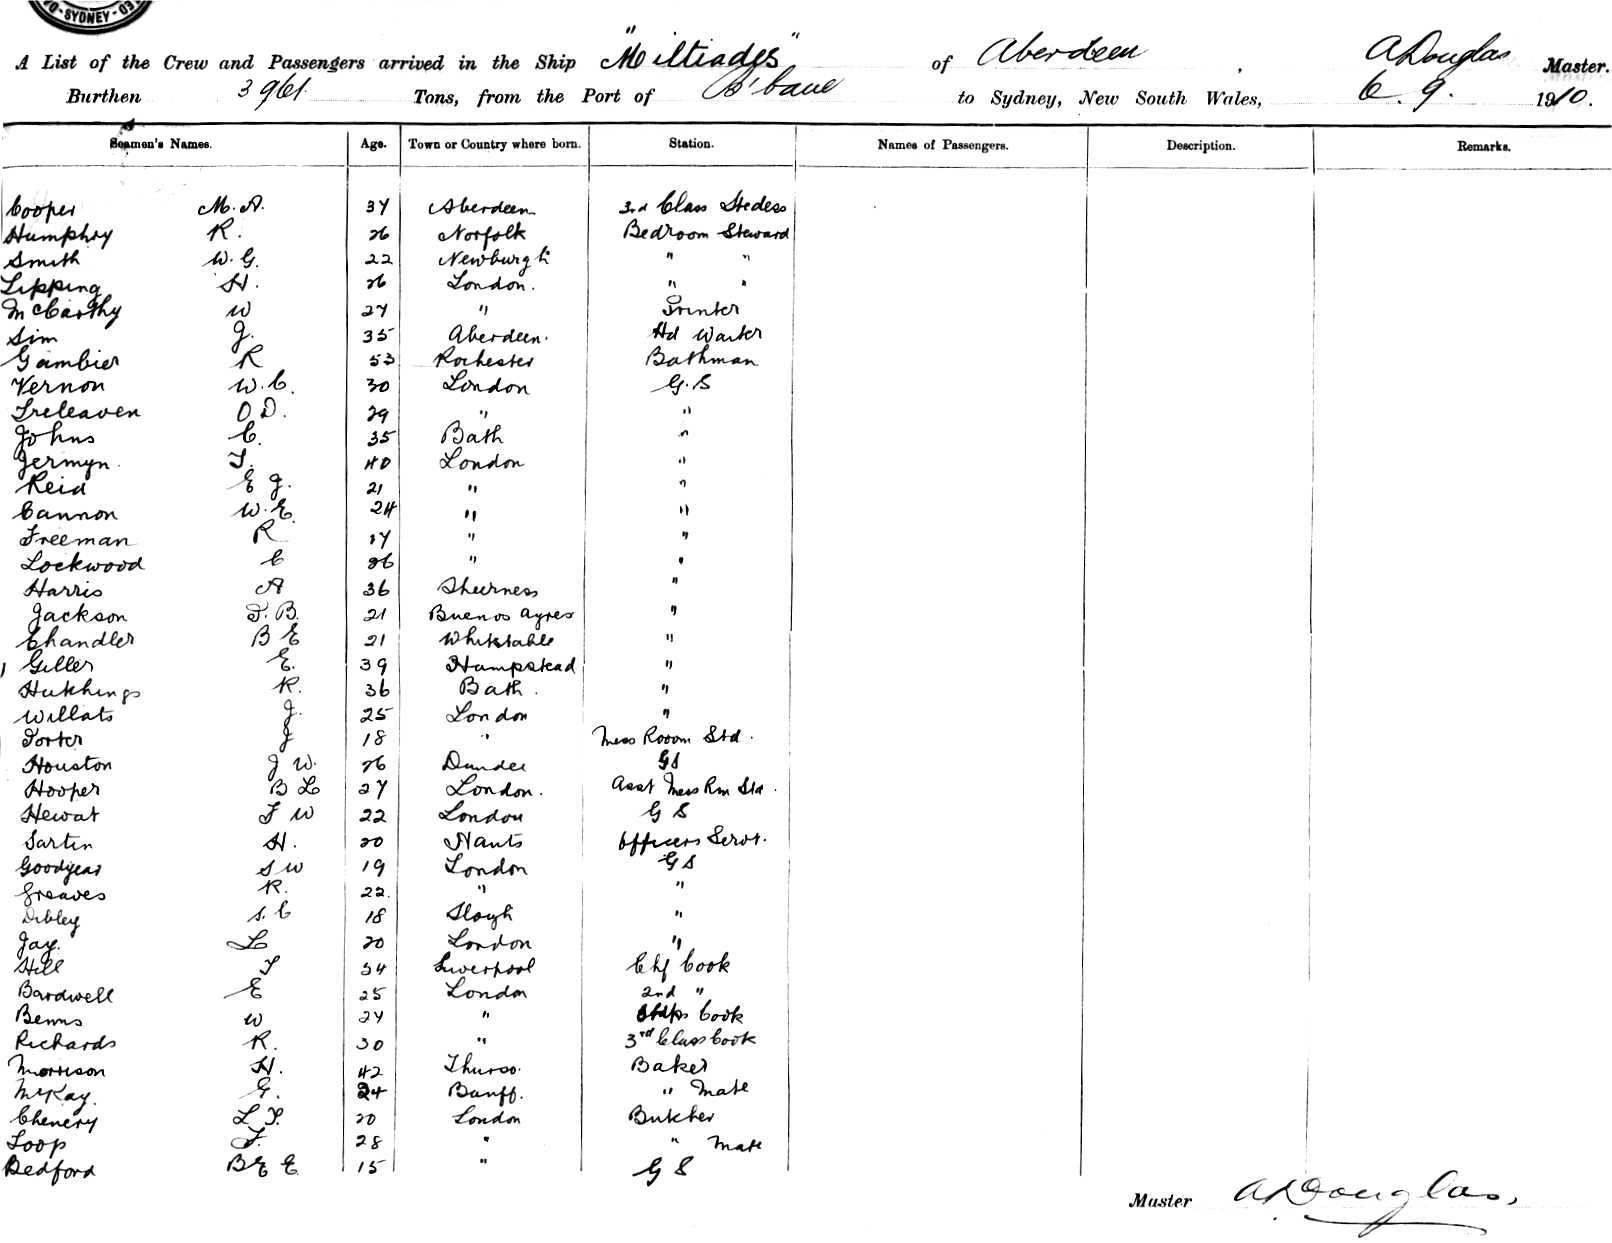 SYDNEY
A List of the Crew and Passengers arrived in the Ship "Miltiades" of Aberdeen, A Douglas Master.
Burthen 3961 Tons, from the Port of B'bane to Sydney, New South Wales, 6. 9. 1910.
Seamen's Names. Age. Town or Country where born. Station. Names of Passengers. Description. Remarks.
Cooper M. A. 37 Aberdeen 3rd Class Stedess
Humphry R. 26 Norfolk Bedroom Steward
Smith W. G. 22 Newburgh " "
Lipping H. 26 London. " "
McCarthy W 27 " Printer
Sim J. 35 Aberdeen. Hd Waiter
Gambier R 53 Rochester Bathman
Vernon W. C. 30 London G. S
Treleaven O D. 29 " "
Johns C. 35 Bath "
Jermyn. T. 40 London "
Reid E J. 21 " "
Cannon W. E. 24 " "
Freeman R 37 " "
Lockwood C 26 " "
Harris A 36 Sheerness "
Jackson F. B. 21 Buenos Ayres "
Chandler B E 21 Whitstable "
Giller E. 39 Hampstead "
Hutchings R. 36 Bath. "
Willats J. 25 London "
Porter J 18 " Mess Rooom Std.
Houston J W. 26 Dundee GS
Hooper B L 27 London. Asst Mess Rm Std.
Hewat F W 22 London G S
Sartin H. 20 Hants Officers Servt.
Goodyear S W 19 London GS
Greaves R. 22. " "
Dibley S. C 18 Slough "
Jay. L 20 London "
Hill T 34 Liverpool Chf Cook
Bardwell E 25 London 2nd "
Benns W 27 " Ships Cook
Richards R. 30 " 3rd Class Cook
Morrison H. 42 Thurso. Baker
McKay. G. 24 Banff. " Mate
Chenery L F. 20 London Butcher
Loop F. 28 " " Mate
Bedford B E E 15 " G S
Master A Douglas.